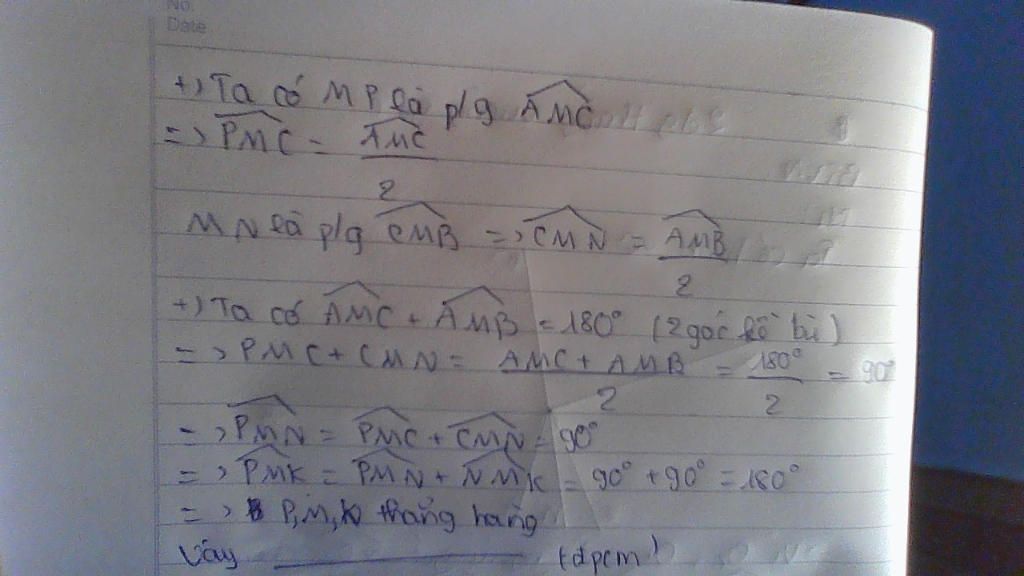 No.
Date
+) Ta có MP là p/g AMC
=> PMC = AMC/2
MN là p/g CMB => CMN = AMB/2
+) Ta có AMC + AMB = 180° (2 góc kề bù)
=> PMC + CMN = (AMC + AMB)/2 = 180°/2 = 90°
=> PMN = PMC + CMN = 90°
=> PMK = PMN + NMK = 90° + 90° = 180°
=> P, M, K thẳng hàng
Vậy ________ (đpcm)